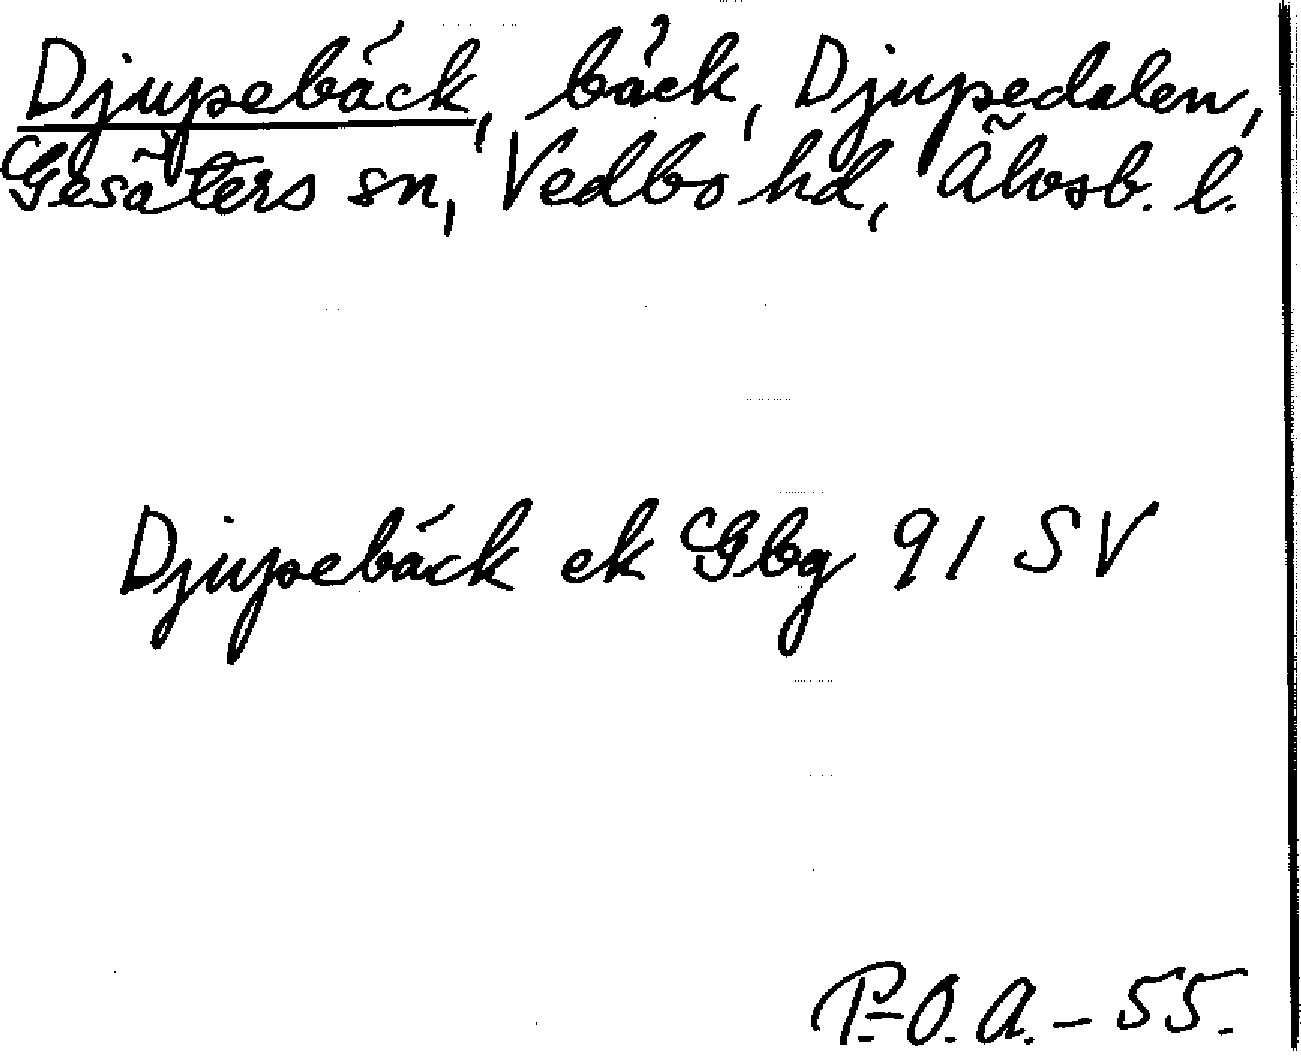 Djupebäck, bäck, Djupedalen,
Gesäters sn, Vedbo hd, Älvsb. l.
Djupebäck ek Gbg 91 SV
P.-O. A. - 55.